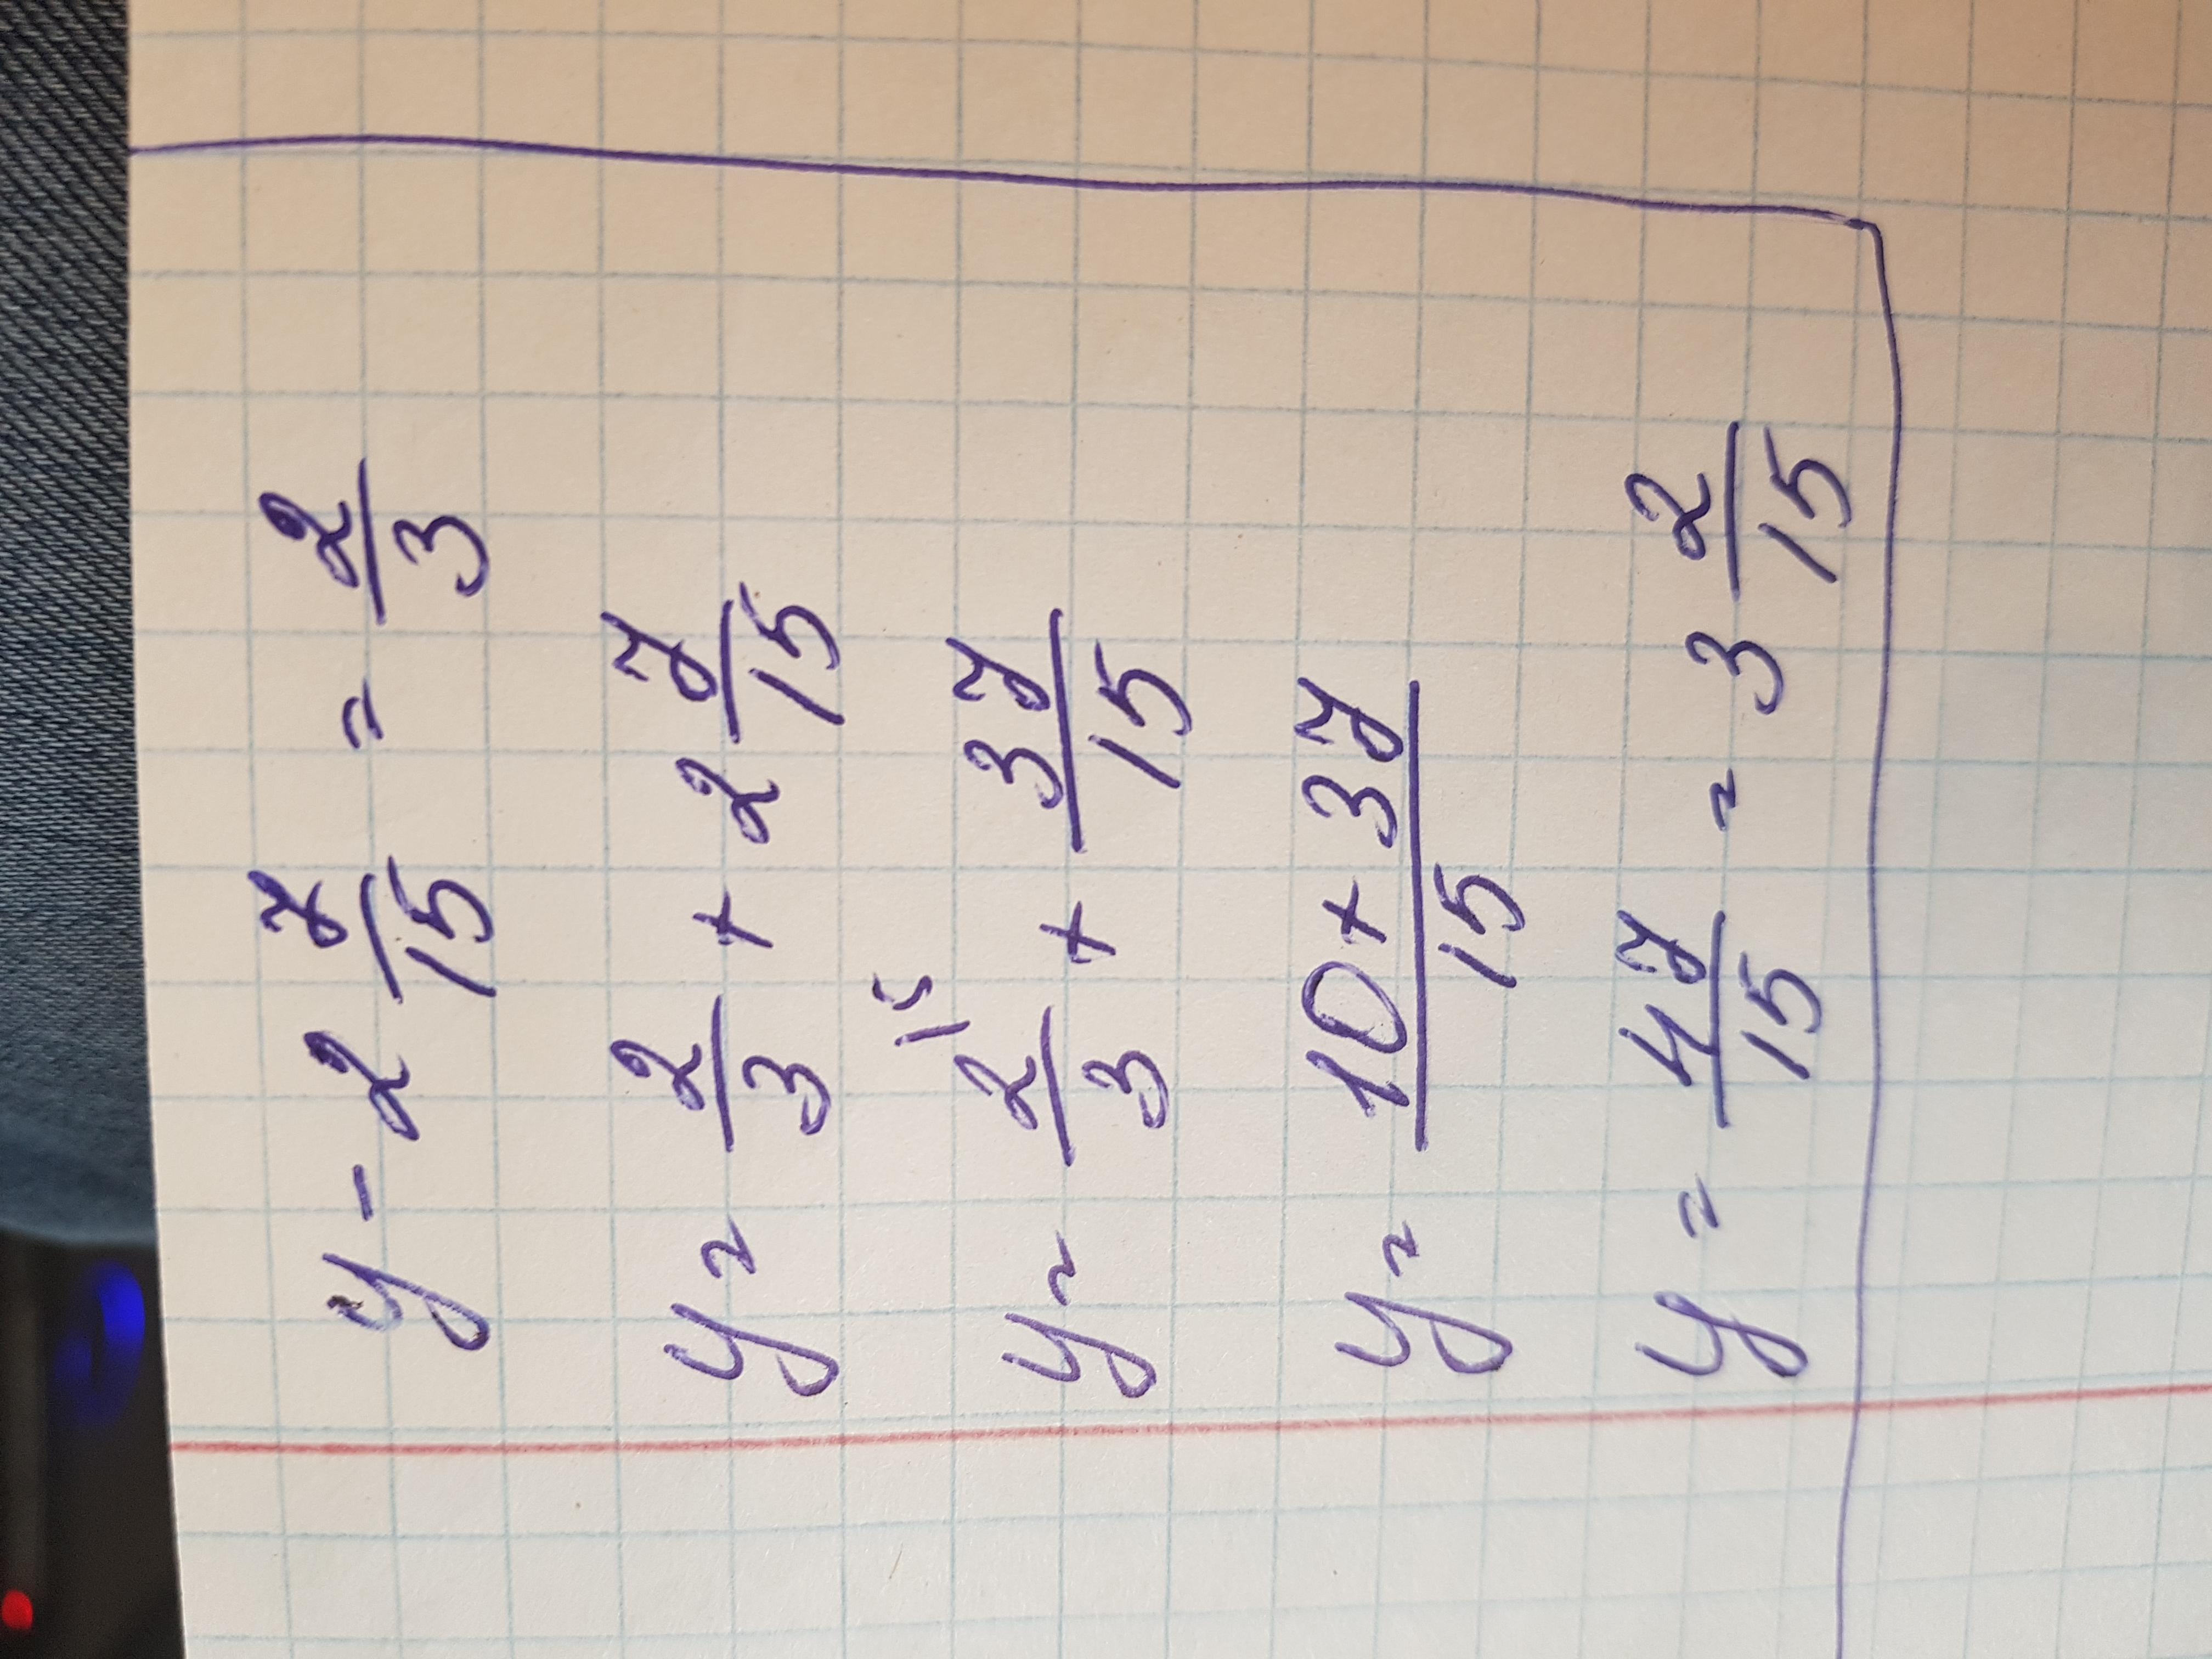 y - 2 7/15 = 2/3
y = 2/3 + 2 7/15
y = 2\5/3 + 37/15
y = 10 + 37/15
y = 47/15 = 3 2/15